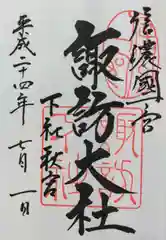 信濃國一宮
諏訪大社
下社秋宮
平成二十四年七月一日